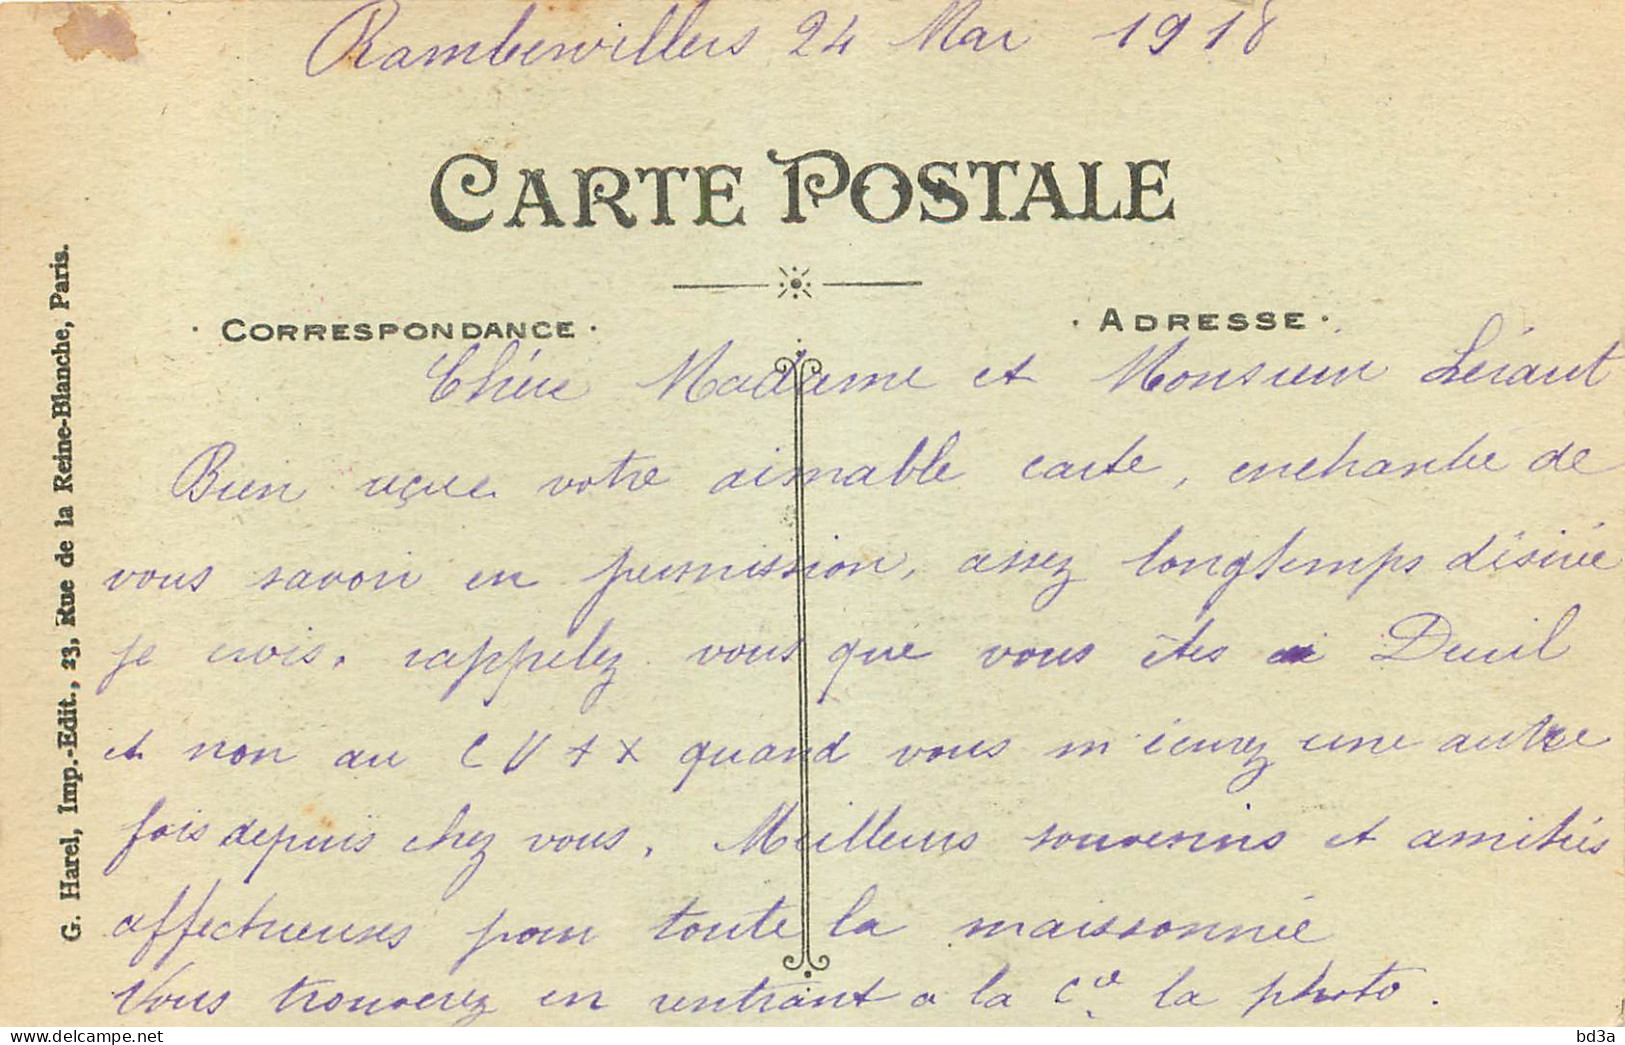 Rambervillers 24 Mai 1918
CARTE POSTALE
CORRESPONDANCE
ADRESSE
G. Harel, Imp.-Edit., 23, Rue de la Reine-Blanche, Paris.
Chère Madame et Monsieur
Bien reçue votre aimable carte, enchantée de
vous savoir en permission, assez longtemps désirée
je crois, rappelez vous que vous êtes a Deuil
et non au C V + x quand vous m'écurez une autre
fois depuis chez vous. Meilleurs souvenirs et amitiés
affectueuses pour toute la maissonnée
Vous trouverez en rentrant a la Cie la photo.
bd3a